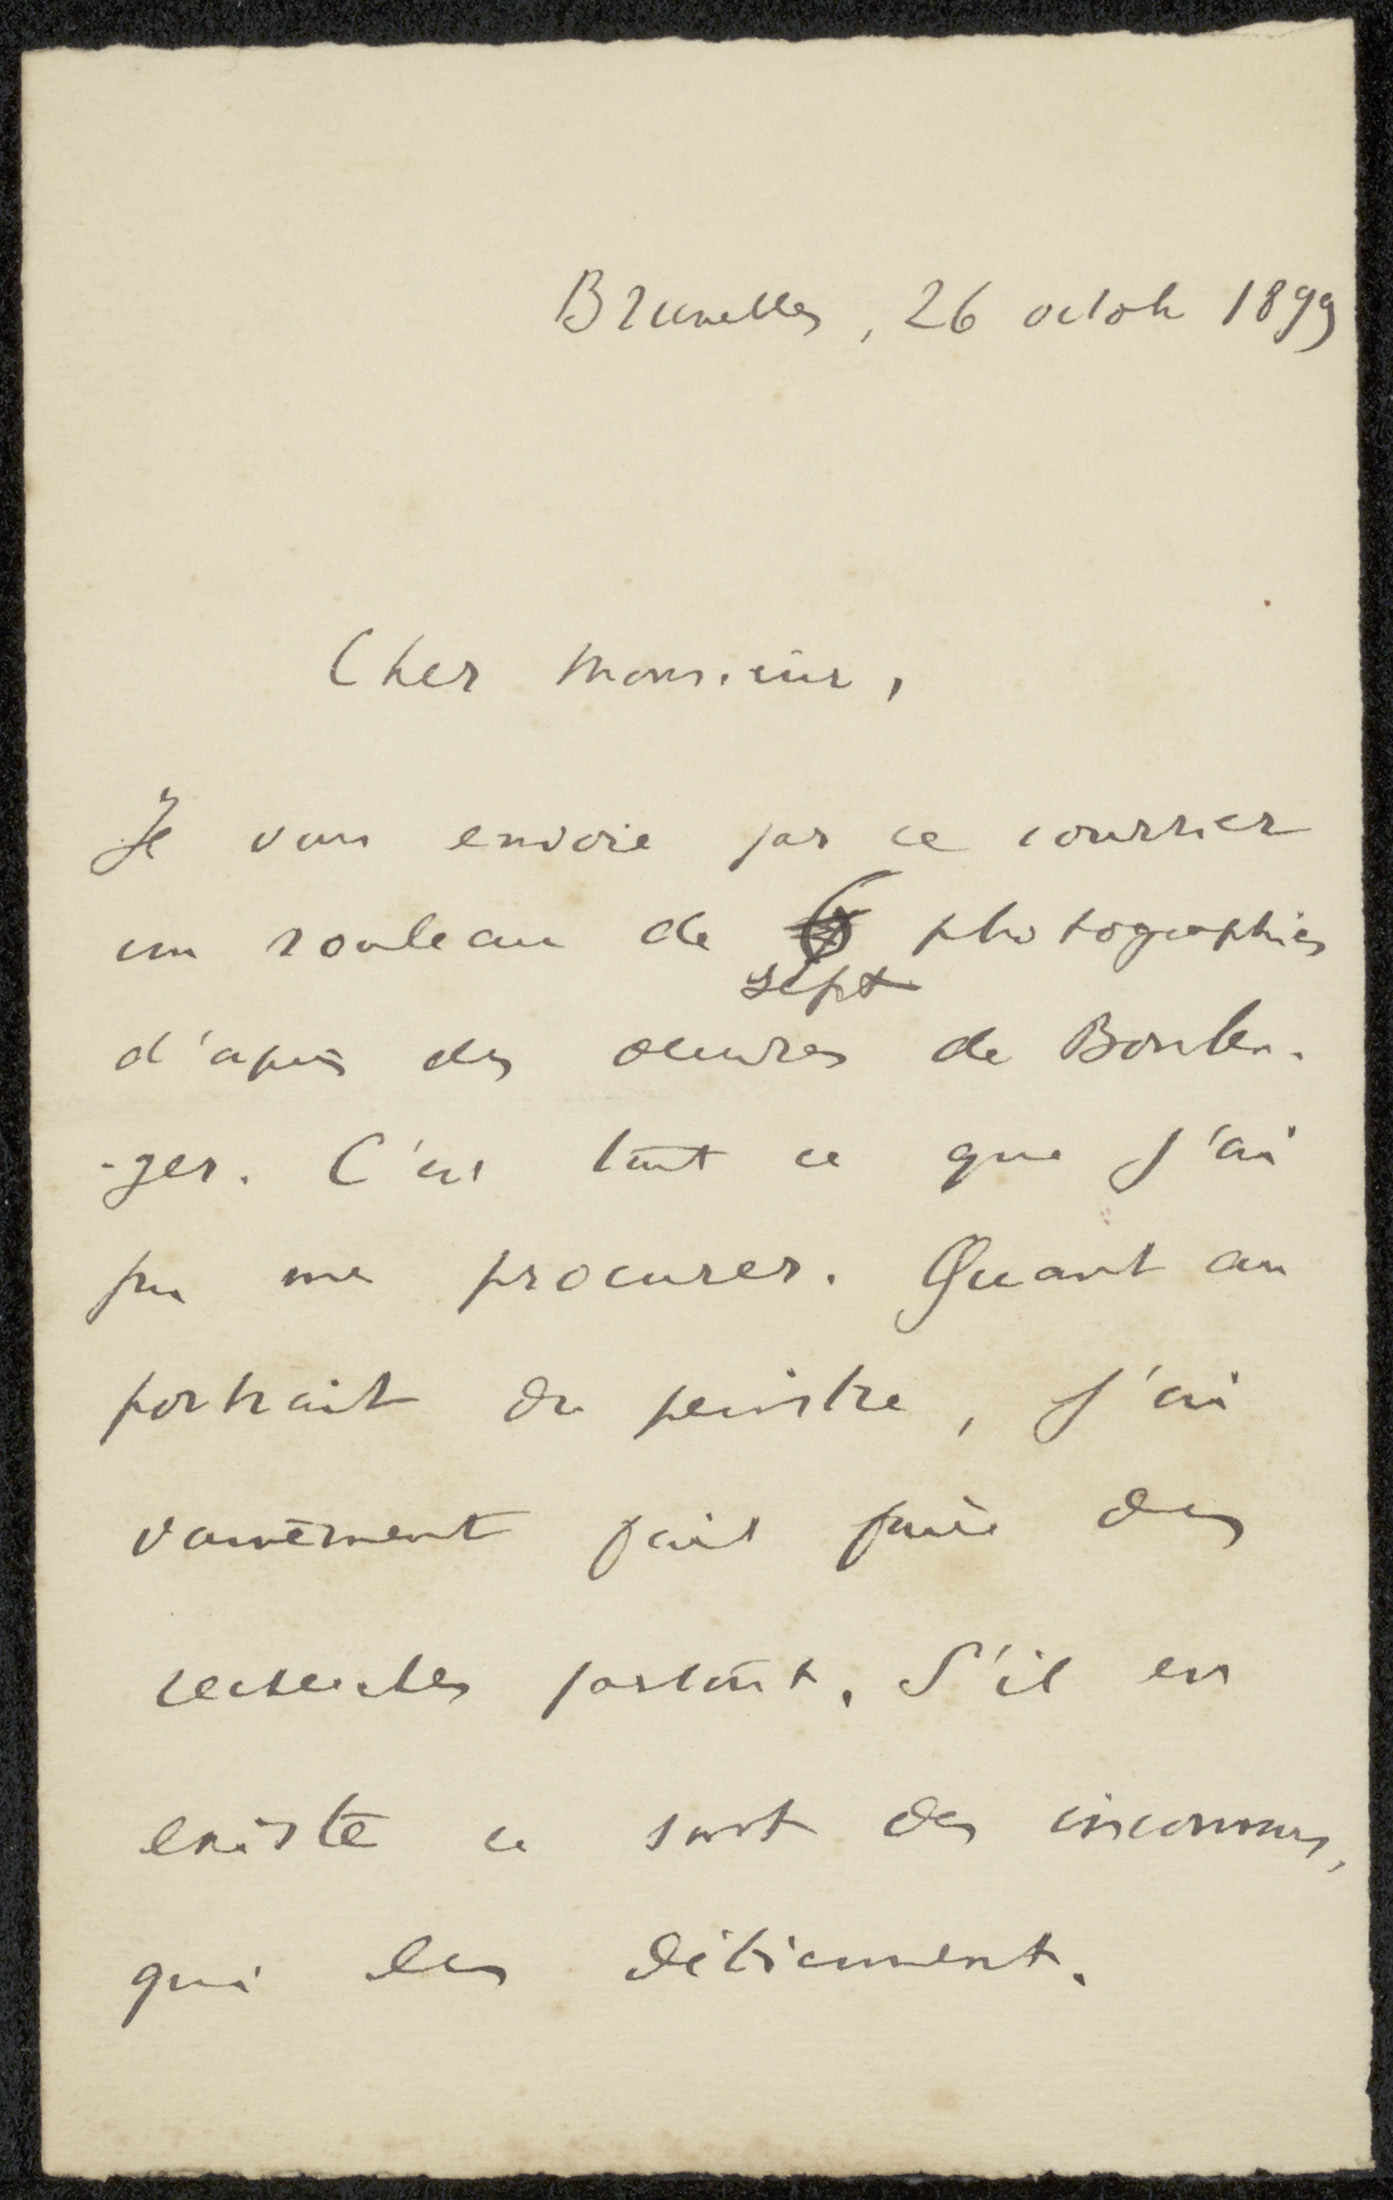 Bruxelles, 26 octob 1899
Cher Monsieur,
Je vous envoie par ce courrier
un rouleau de photographies
sept
d'après des oeuvres de Boulen-
-ger. C'est tout ce que j'ai
pu me procurer. Quant au
portrait du peintre, j'ai
vainement fait faire des
recherches partout. S'il en
existe ce sont des inconnus,
qui les détiennent.